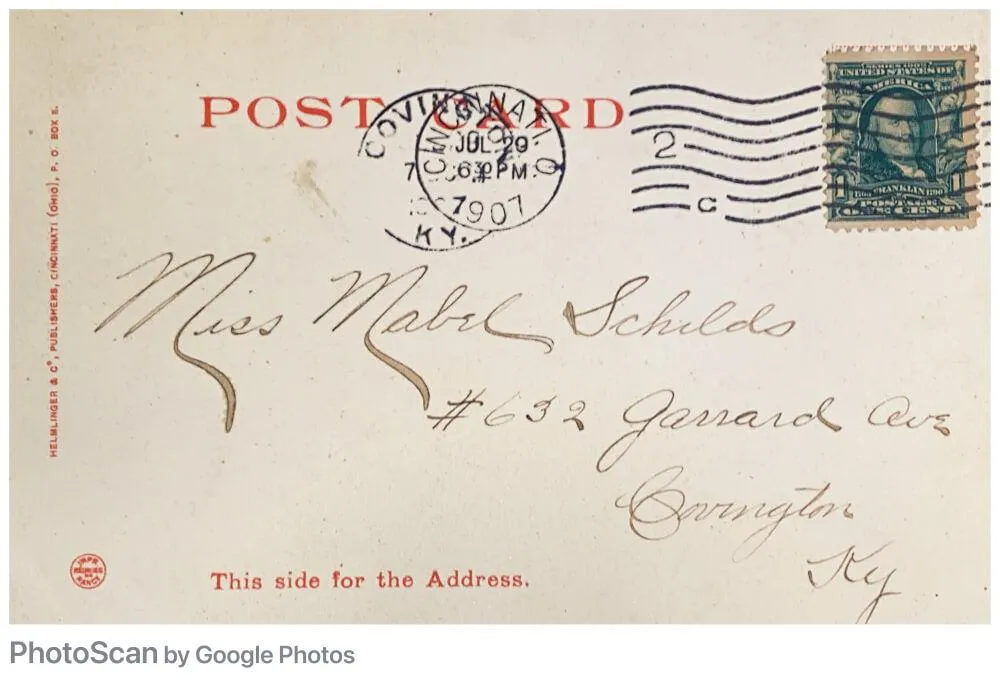 POST CARD
COVINGTON
KY.
CINCINNATI, O.
JUL 29
630 PM
1907
2
C
SERIES 1902
UNITED STATES OF
AMERICA
1 FRANKLIN 1
POSTAGE
ONE CENT
HELMLINGER & Cº, PUBLISHERS, CINCINNATI (OHIO), P. O. BOX 2.
Miss Mabel Schilds
#632 Garrard Ave
Covington
Ky
IMPR
REUNIES
DE
NANCY
This side for the Address.
PhotoScan by Google Photos